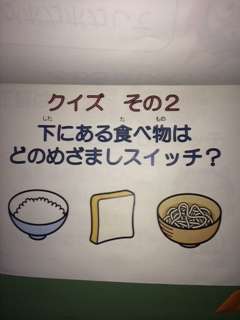 クイズ その2
下にある食べ物は
どのめざましスイッチ?